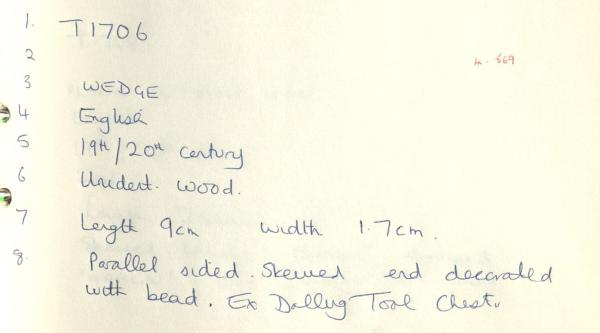 1. T1706
2 4. 569
3 WEDGE
4 English
5 19th/20th century
6 Unident. wood.
7 Length 9cm width 1.7cm.
8. Parallel sided. Skewed end decorated
with bead. Ex Dalling Tool Chest.